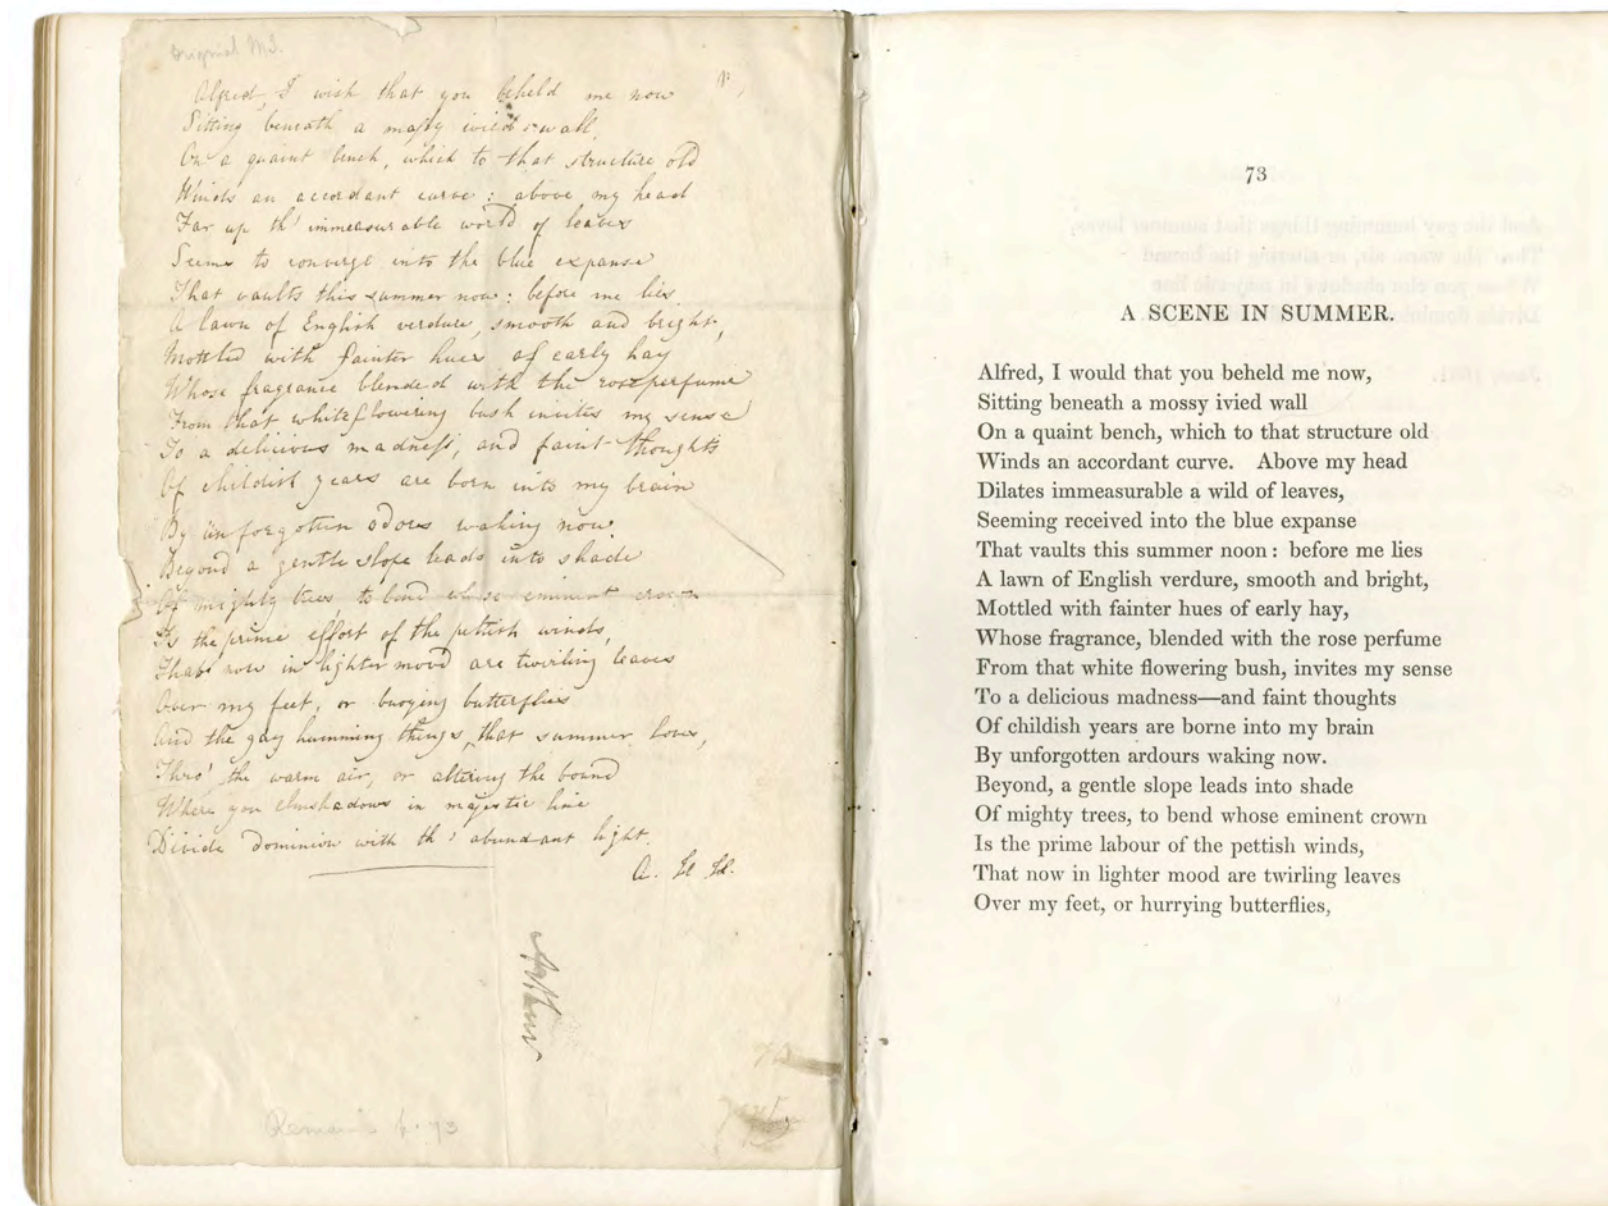 Original MS.
Alfred, I wish that you beheld me now
Sitting beneath a mossy ivied wall,
On a quaint bench, which to that structure old
Winds an accordant curve: above my head
Far up th' immeasurable world of leaves
Seems to converge into the blue expanse
That vaults this summer noon: before me lies
A lawn of English verdure, smooth and bright,
Mottled with fainter hues of early hay
Whose fragrance blended with the rose perfume
From that whiteflowering bush invites my sense
To a delicious madness, and faint thoughts
Of childish years are born into my brain
By unforgotten odours waking now.
Beyond a gentle slope leads into shade
Of mighty trees, to bend whose eminent crown
Is the prime effort of the pettish winds,
That now in lighter mood are twirling leaves
Over my feet, or buoying butterflies
And the gay humming things, that summer loves,
Thro' the warm air, or altering the bound
Where yon elmshadows in majestic line
Divide dominion with th' abundant light.
A. H. H.
Arthur
Remains p. 73
73
A SCENE IN SUMMER.
Alfred, I would that you beheld me now,
Sitting beneath a mossy ivied wall
On a quaint bench, which to that structure old
Winds an accordant curve. Above my head
Dilates immeasurable a wild of leaves,
Seeming received into the blue expanse
That vaults this summer noon: before me lies
A lawn of English verdure, smooth and bright,
Mottled with fainter hues of early hay,
Whose fragrance, blended with the rose perfume
From that white flowering bush, invites my sense
To a delicious madness—and faint thoughts
Of childish years are borne into my brain
By unforgotten ardours waking now.
Beyond, a gentle slope leads into shade
Of mighty trees, to bend whose eminent crown
Is the prime labour of the pettish winds,
That now in lighter mood are twirling leaves
Over my feet, or hurrying butterflies,